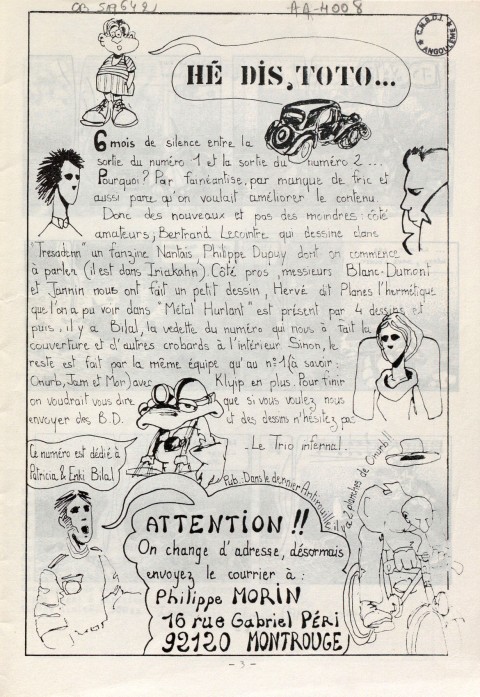 AA-4008
C.N.B.D.I. ANGOULÊME
HÉ DIS, TOTO...
6 mois de silence entre la
sortie du numéro 1 et la sortie du numéro 2...
Pourquoi? Par fainéantise, par manque de fric et
aussi parce qu'on voulait améliorer le contenu.
Donc des nouveaux et pas des moindres: côté
amateurs, Bertrand Lecointre qui dessine dans
"Tresadenn" un fanzine Nantais, Philippe Dupuy dont on commence
à parler (il est dans Iriakahn). Côté pros, messieurs Blanc-Dumont
et Jannin nous ont fait un petit dessin, Hervé dit Planes l'hermétique
que l'on a pu voir dans "Métal Hurlant" est présent par 4 dessins et
puis, il y a Bilal, la vedette du numéro qui nous a fait la
couverture et d'autres crobards à l'intérieur. Sinon, le
reste est fait par la même équipe qu'au n°1 (à savoir:
Cnurb, Jam et Mor) avec Klyip en plus. Pour finir
on voudrait vous dire que si vous voulez nous
envoyer des B.D. et des dessins n'hésitez pas
- Le Trio infernal -
Ce numéro est dédié à
Patricia & Enki Bilal
Pub: Dans le dernier Antirouille, il y a 2 planches de Cnurb!!
ATTENTION !!
On change d'adresse, désormais
envoyez le courrier à :
Philippe MORIN
16 rue Gabriel Péri
92120 MONTROUGE
- 3 -